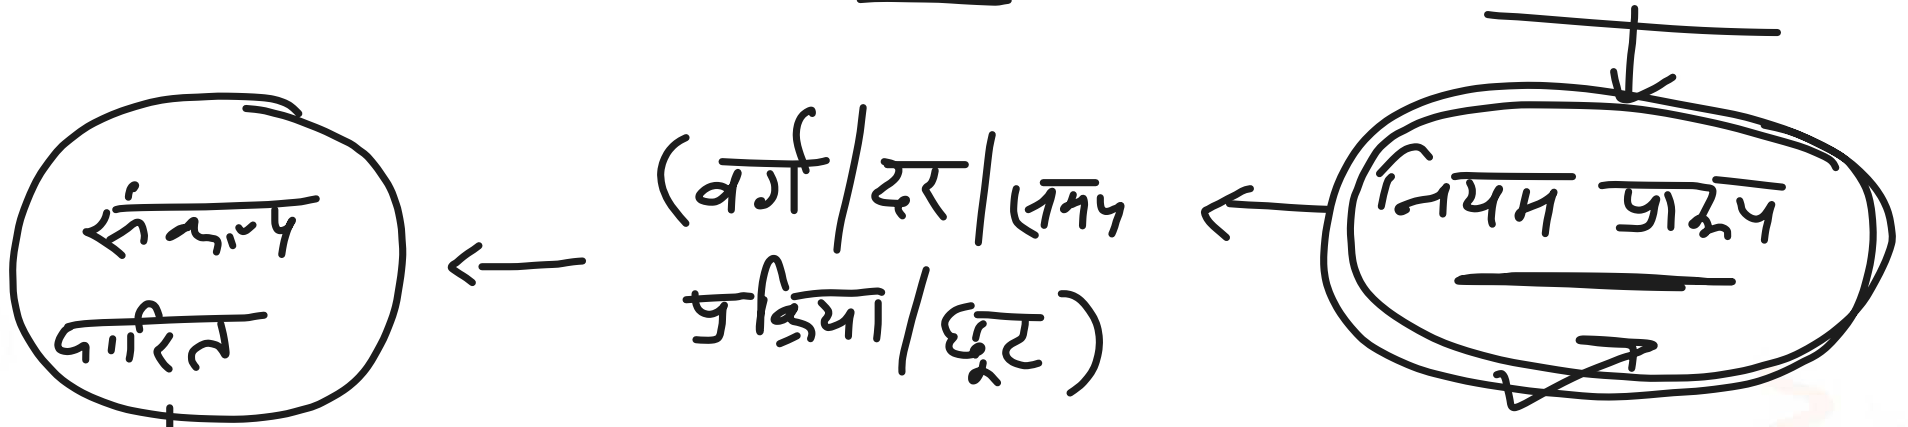 संकल्प
पारित
(वर्ग/दर/समय
प्रक्रिया/छूट)
नियम प्रारूप